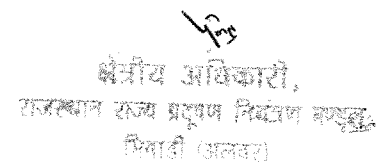 क्षेत्रीय अधिकारी,
राजस्थान राज्य प्रदूषण नियंत्रण मण्डल
भिवाडी (अलवर)